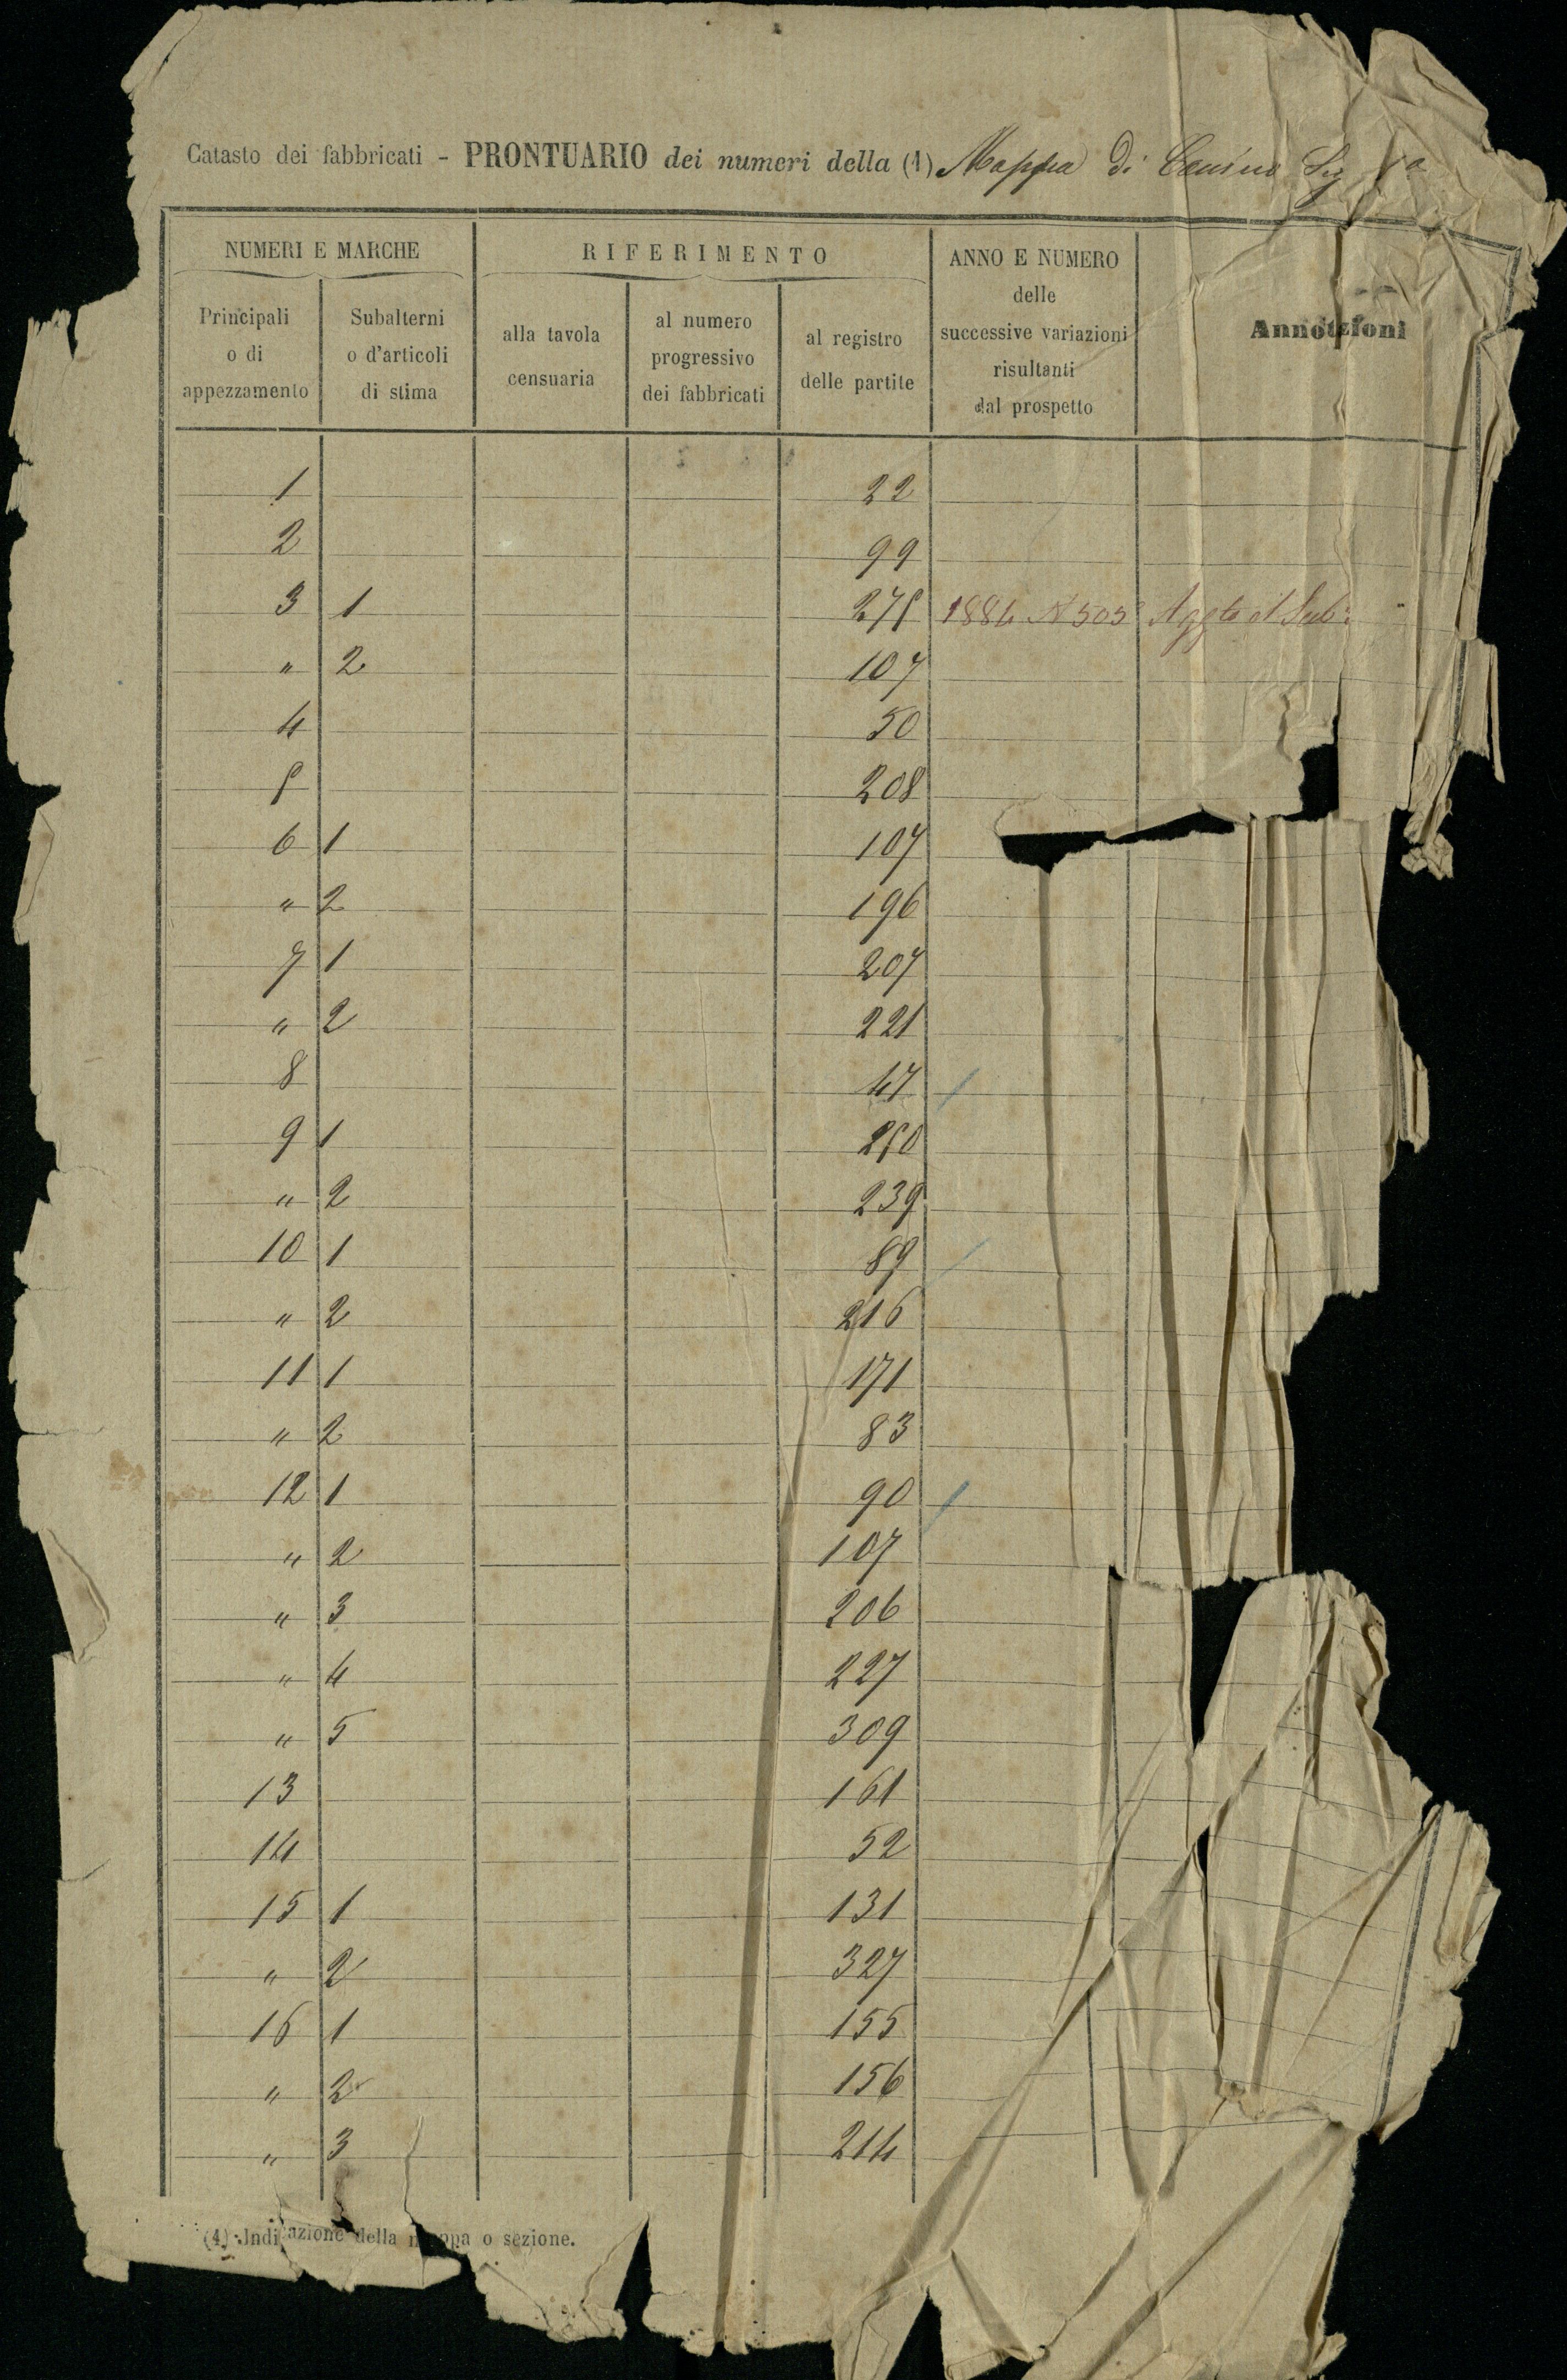 Catasto dei fabbricati - PRONTUARIO dei numeri della (1) Mappa di Canino
NUMERI E MARCHE
RIFERIMENTO
ANNO E NUMERO
delle
successive variazioni
risultanti
dal prospetto
Annotazioni
Principali
o di
appezzamento
Subalterni
o d'articoli
di stima
alla tavola
censuaria
al numero
progressivo
dei fabbricati
al registro
delle partite
1 22
2 99
3 1 275 1886 N 505
" 2 107
4 50
5 208
6 1 107
" 2 196
7 1 207
" 2 221
8 47
9 1 250
" 2 239
10 1 89
" 2 216
11 1 171
" 2 83
12 1 90
" 2 107
" 3 206
" 4 227
" 5 309
13 161
14 52
15 1 131
" 2 327
16 1 155
" 2 156
" 3 214
(1) Indicazione della mappa o sezione.